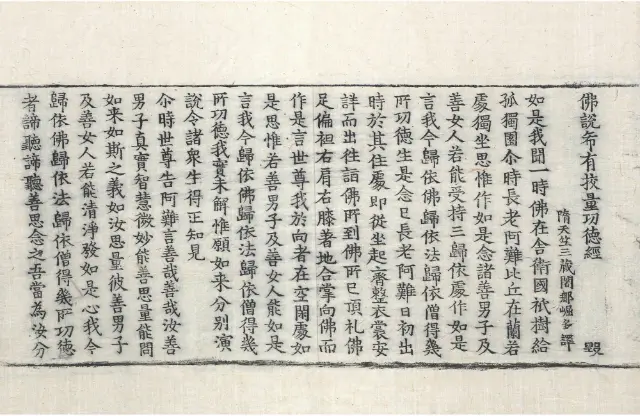 佛說希有挍量功德經
隋天竺三藏闍那崛多譯
如是我聞一時佛在舍衛國祇樹給
孤獨園尒時長老阿難比丘在蘭若
處獨坐思惟作如是念諸善男子及
善女人若能受持三歸依處作如是
言我今歸依佛歸依法歸依僧得幾
所功德生是念已長老阿難日初出
時於其住處即從坐起齊整衣裳安
詳而出往詣佛所到佛所已頂礼佛
足偏袒右肩右膝著地合掌向佛而
作是言世尊我於向者在空閑處如
是思惟若善男子及善女人能如是
言我今歸依佛歸依法歸依僧得幾
所功德我實未解惟願如來分別演
說令諸衆生得正知見
尒時世尊告阿難言善哉善哉汝善
男子真實智慧微妙能善思量能問
如來如斯之義如汝思量彼善男子
及善女人若能清淨發如是心我今
歸依佛歸依法歸依僧得幾所功德
者諦聽諦聽善思念之吾當為汝分